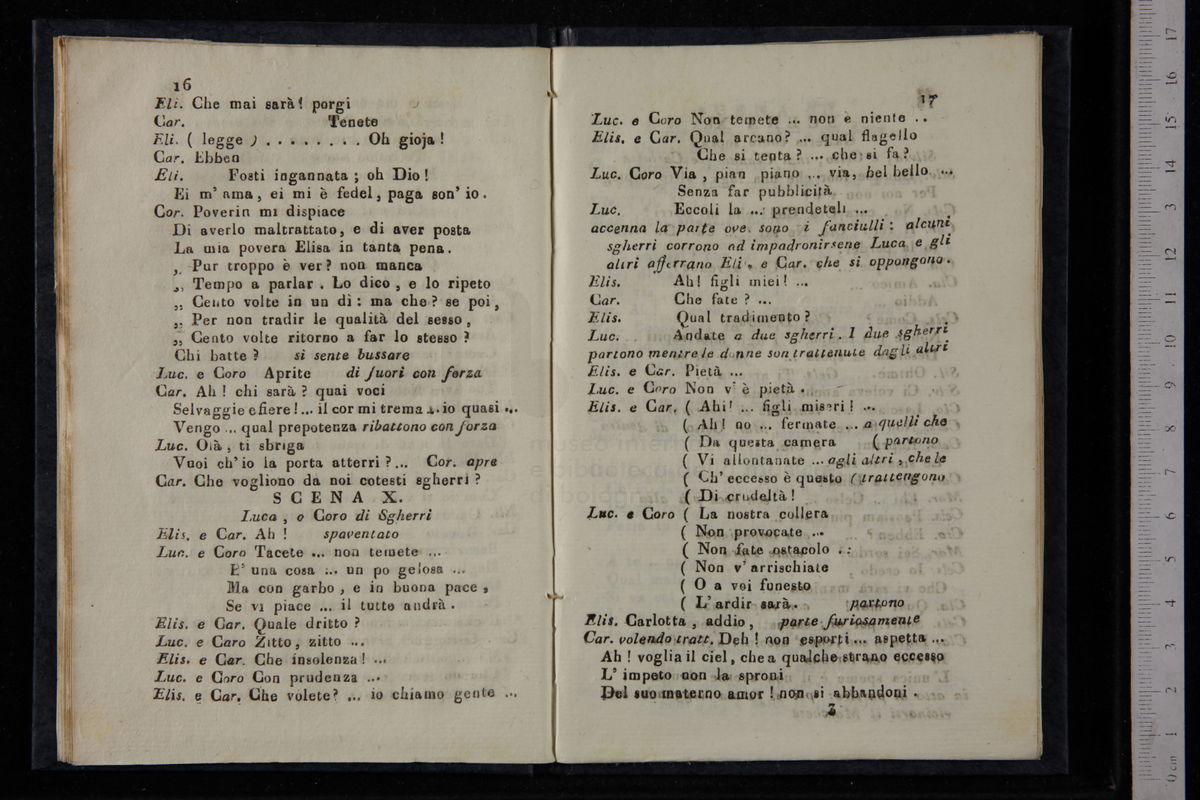 16
Eli. Che mai sarà! porgi
Car. Tenete
Eli. ( legge ) . . . . . . . . Oh gioja !
Car. Ebben
Eli. Fosti ingannata ; oh Dio !
Ei m' ama, ei mi è fedel, paga son' io .
Cor. Poverin mi dispiace
Di averlo maltrattato, e di aver posta
La mia povera Elisa in tanta pena .
,, Pur troppo è ver ? non manca
,, Tempo a parlar . Lo dico , e lo ripeto
,, Cento volte in un dì : ma che ? se poi ,
,, Per non tradir le qualità del sesso ,
,, Cento volte ritorno a far lo stesso ?
Chi batte ? si sente bussare
Luc. e Coro Aprite di fuori con forza
Car. Ah ! chi sarà ? quai voci
Selvaggie e fiere !... il cor mi trema ... io quasi ...
Vengo ... qual prepotenza ribattono con forza
Luc. Olà , ti sbriga
Vuoi ch' io la porta atterri ?... Cor. apre
Car. Che vogliono da noi cotesti sgherri ?
SCENA X.
Luca , o Coro di Sgherri
Elis. e Car. Ah ! spaventato
Luc. e Coro Tacete ... non temete ...
E' una cosa ... un po gelosa ...
Ma con garbo , e in buona pace ,
Se vi piace ... il tutto andrà .
Elis. e Car. Quale dritto ?
Luc. e Caro Zitto , zitto ...
Elis. e Car. Che insolenza ! ...
Luc. e Coro Con prudenza ...
Elis. e Car. Che volete? ... io chiamo gente ...
17
Luc. e Coro Non temete ... non è niente ..
Elis. e Car. Qual arcano? ... qual flagello
Che si tenta ? ... che si fa ?
Luc. Coro Via , pian piano ... via, bel bello ...
Senza far pubblicità
Luc. Eccoli la ... prendeteli ...
accenna la parte ove sono i fanciulli : alcuni
sgherri corrono ad impadronirsene Luca e gli
altri afferrano Eli. e Car. che si oppongono .
Elis. Ah! figli miei ! ...
Car. Che fate ? ...
Elis. Qual tradimento ?
Luc. Andate a due sgherri . I due sgherri
partono mentre le donne son trattenute dagli altri
Elis. e Car. Pietà ...
Luc. e Coro Non v' è pietà .
Elis. e Car. ( Ahi! ... figli miseri ! ...
( Ah ! no ... fermate ... a quelli che
( Da questa camera ( partono
( Vi allontanate ... agli altri , che le
( Ch' eccesso è questo ( trattengono
( Di crudeltà !
Luc. e Coro ( La nostra collera
( Non provocate ...
( Non fate ostacolo . :
( Non v' arrischiate
( O a voi funesto
( L' ardir sarà . partono
Elis. Carlotta , addio , parte furiosamente
Car. volendo tratt. Deh ! non esporti ... aspetta ...
Ah ! voglia il ciel , che a qualche strano eccesso
L' impeto non la sproni
Del suo materno amor ! non si abbandoni .
3